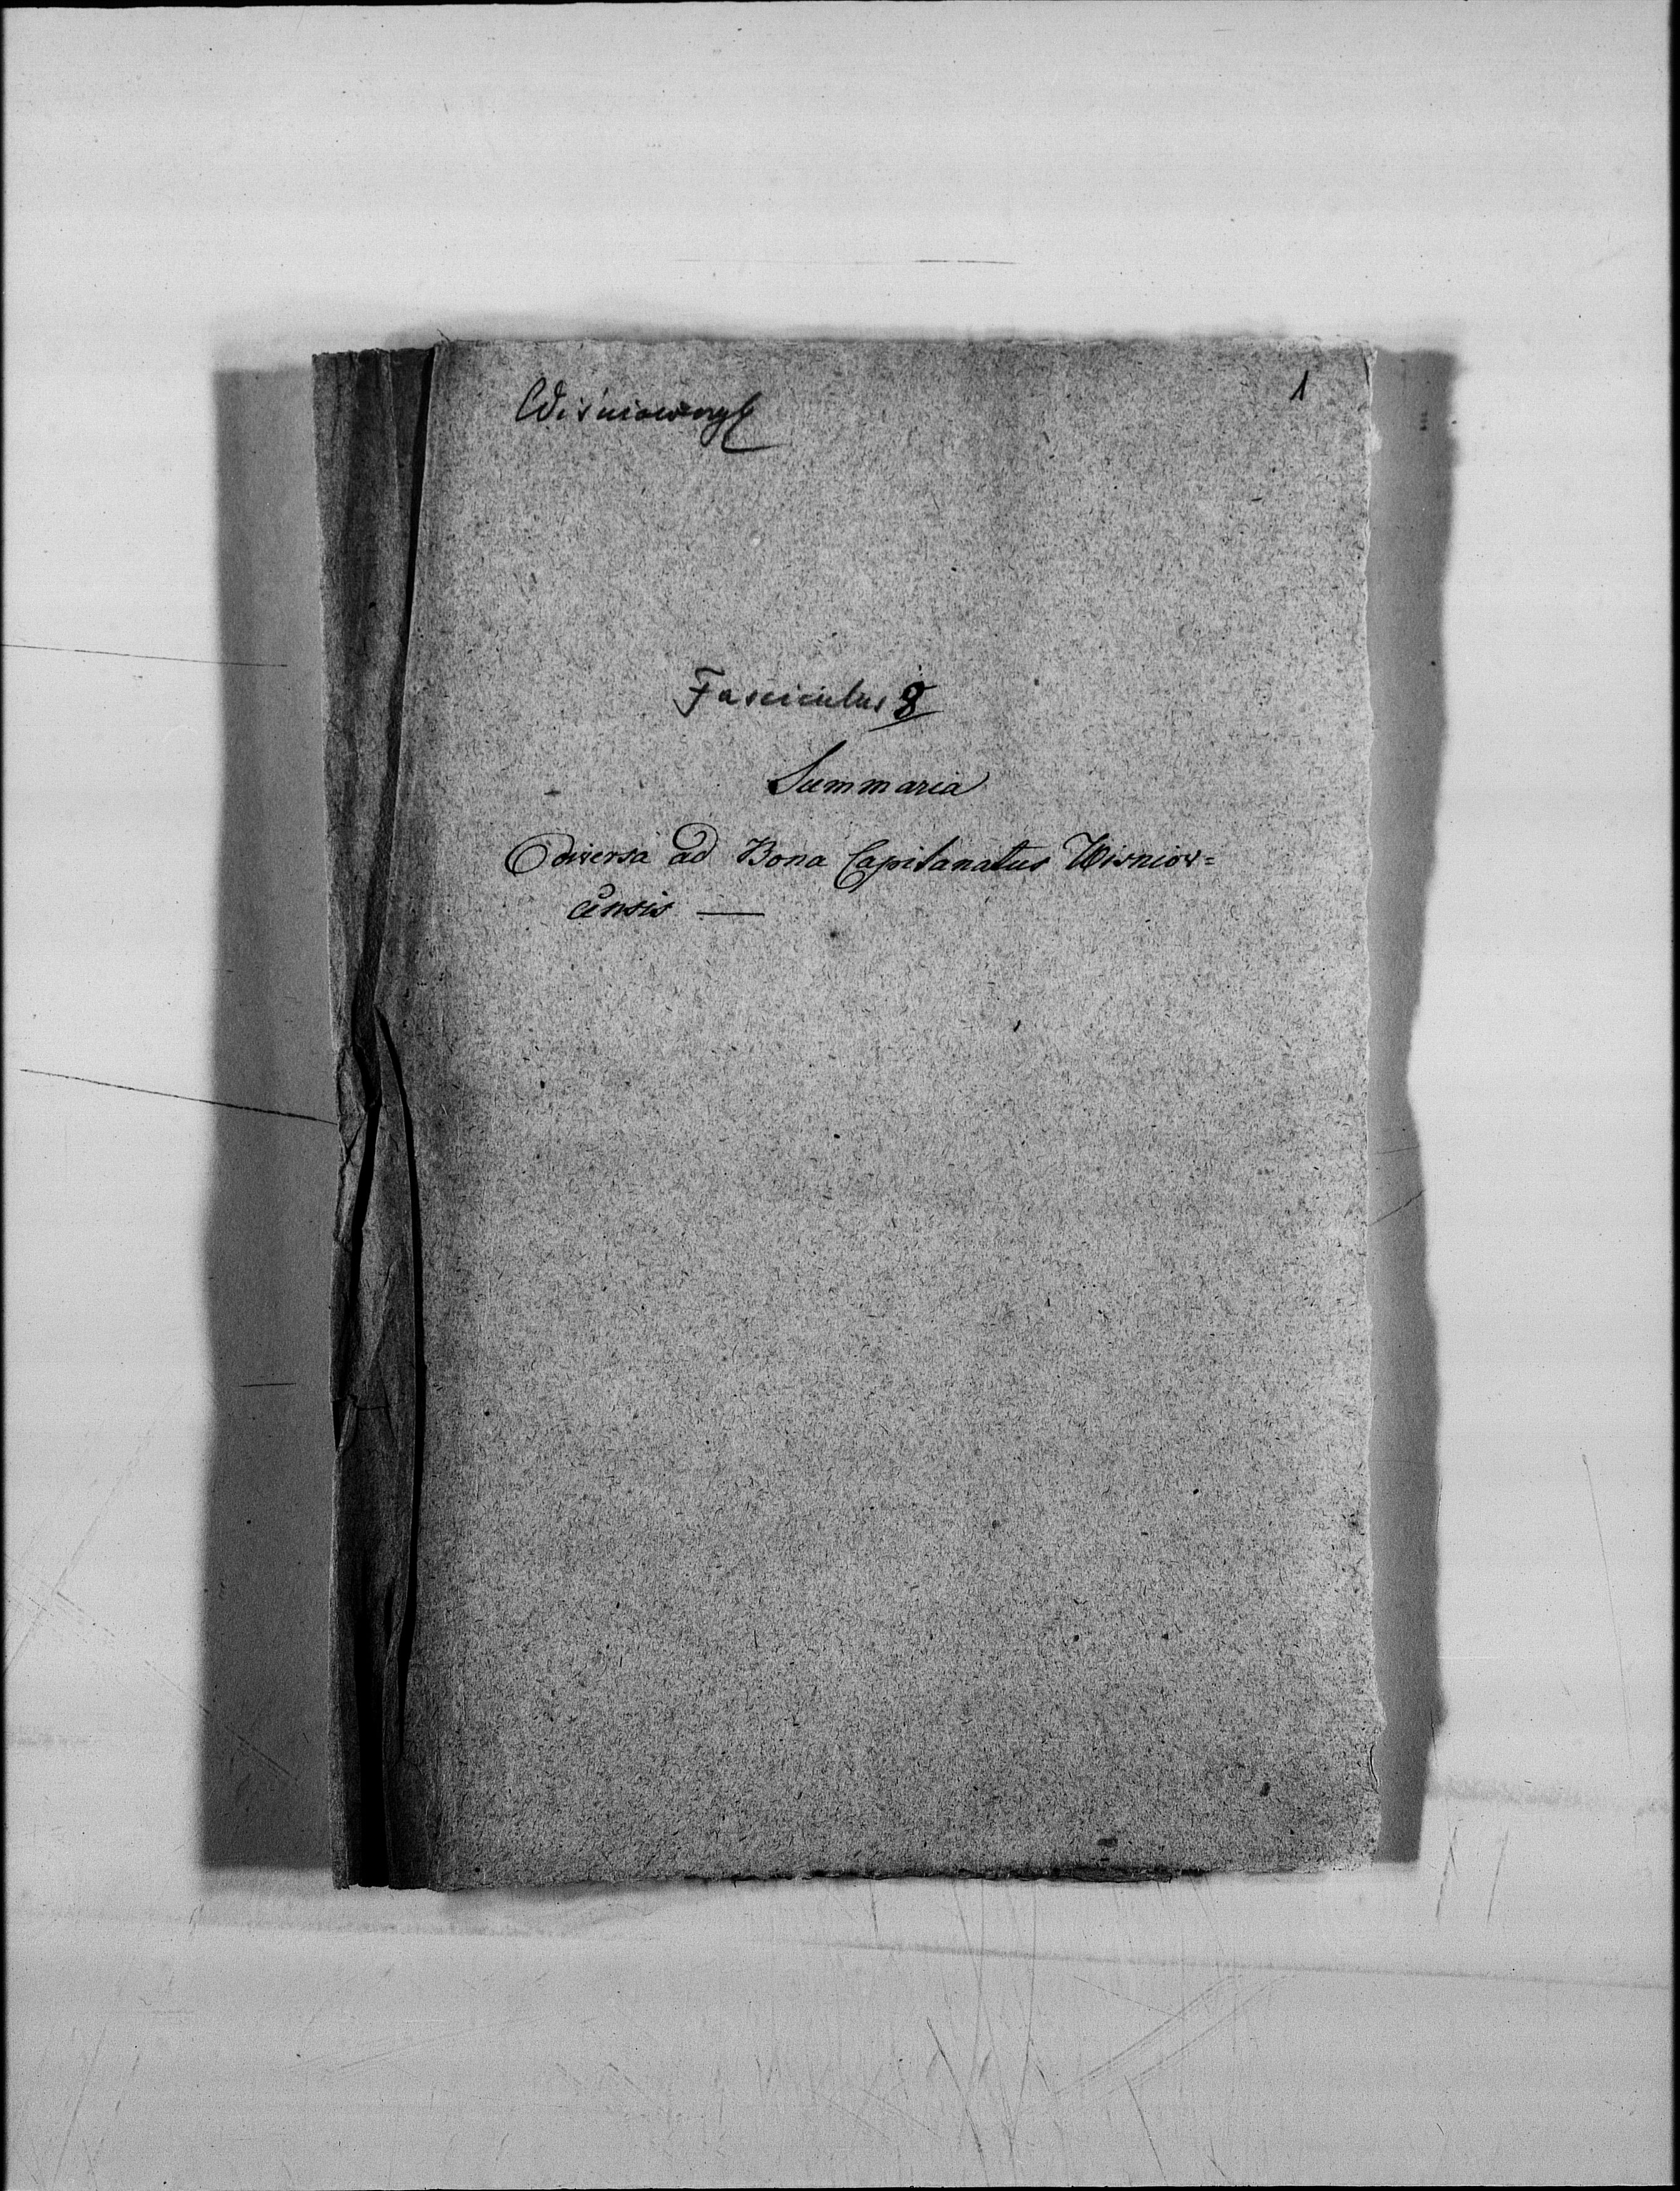 Wiśniowczyk
1
Fasciculus 8
Summaria
Diversa ad Bona Capitanatus Wisniov=
censis —